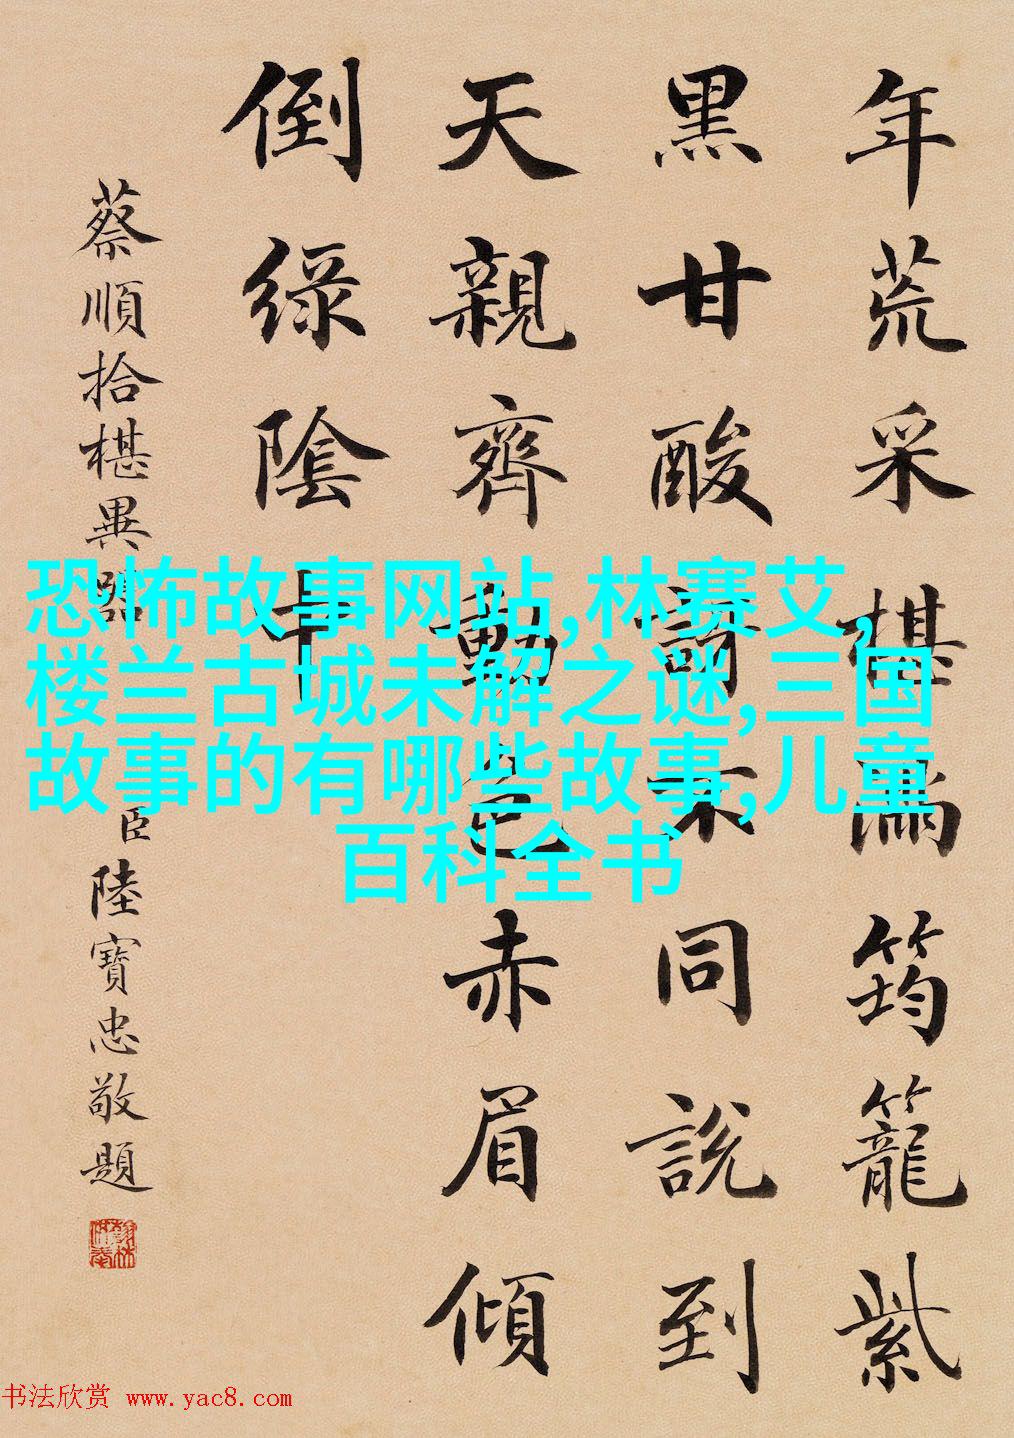 年荒采椹滿筠籠紫
黑甘酸不同說到
天親齊動色赤眉傾
倒綠陰中
蔡順拾椹異器
臣陸寶忠敬題
恐怖故事网站,林赛艾,
楼兰古城未解之谜,三国
故事的有哪些故事,儿童
百科全书
书法欣赏 www.yac8.com